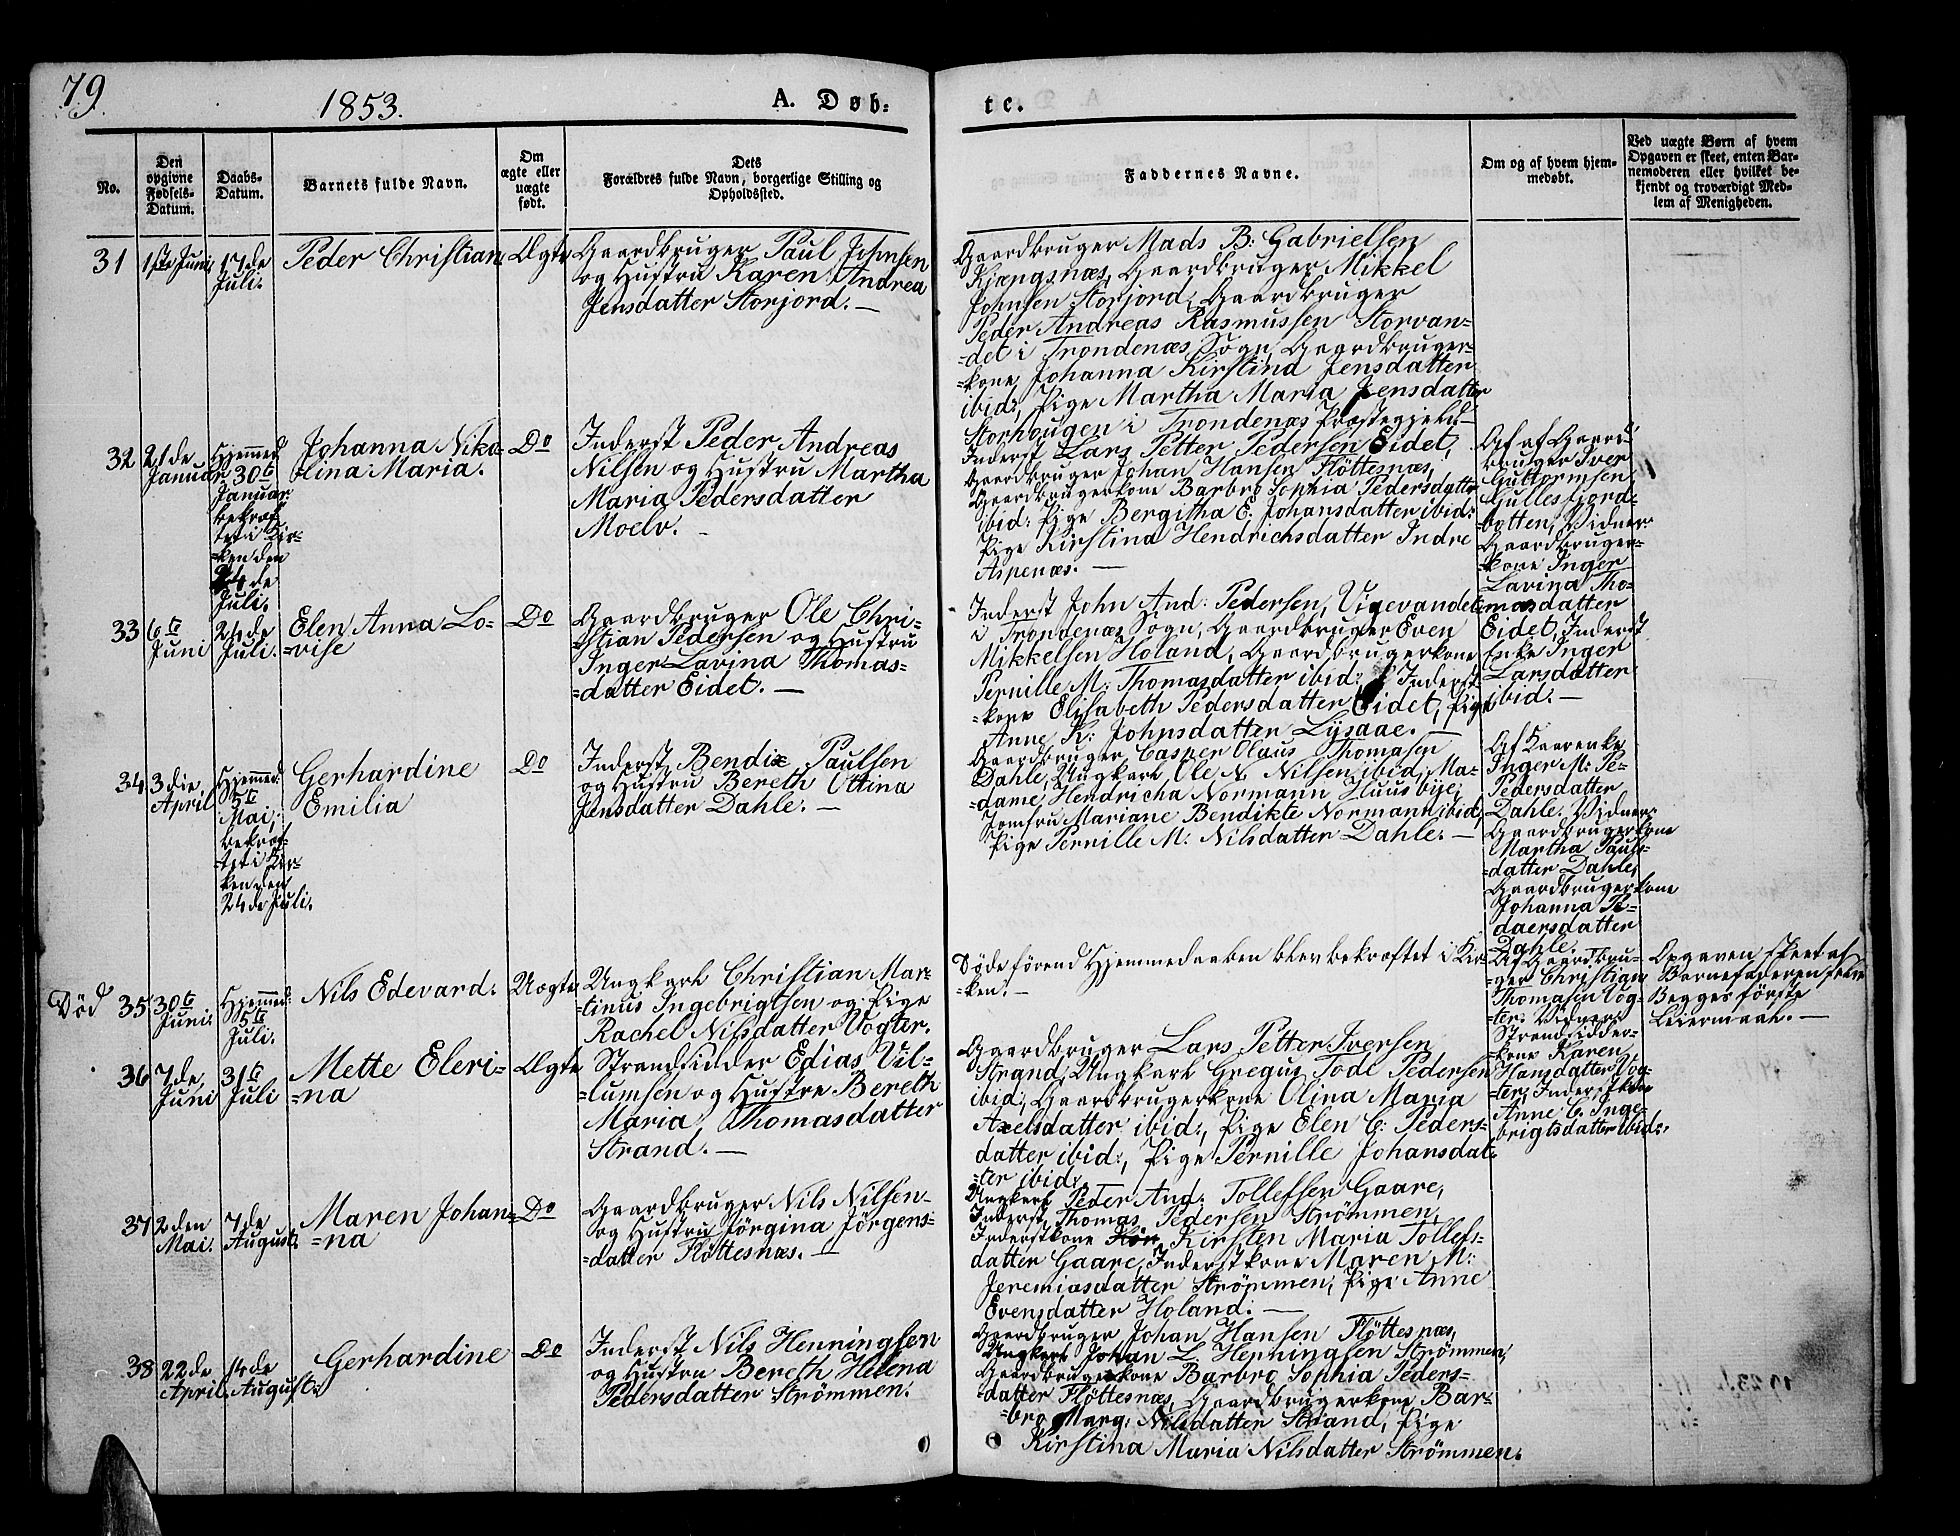 79.
1853.
A. Døb-
te.
No.
Den opgivne Fødsels-Datum.
Daabs-Datum.
Barnets fulde Navn.
Om ægte eller uægte født.
Dets
Forældres fulde Navn, borgerlige Stilling og
Opholdssted.
Faddernes Navne.
Om og af hvem hjem-
medøbt.
Ved uægte Børn af hvem
Opgaven er skeet, enten Bar-
nemoderen eller hvilket be-
kjendt og troværdigt Med-
lem af Menigheden.
31
1ste Juni
17de
Juli.
Peder Christian
Ægte
Gaardbruger Paul Johnsen
og Hustru Karen Andrea
Jensdatter Storjord. —
Gaardbruger Mads B: Gabrielsen
Kjængsnæs, Gaardbruger Mikkel
Johnsen Storjord, Gaardbruger
Peder Andreas Rasmussen Storvan=
=det i Trondenæs Sogn, Gaardbruger=
=kone Johanna Kirstina Jensdatter
ibid:, Pige Martha Maria Jensdatter
Storhougen i Trondenæs Præstegjeld —
32
21de
Januar
Hjemmed:
30te
Januar
bekræf=
tet i Kir=
=ken den
24de
Juli.
Johanna Niko=
=lina Maria.
Do
Inderst Peder Andreas
Nilsen og Hustru Martha
Maria Pedersdatter
Moelv. —
Inderst Lars Petter Pedersen Eidet,
Gaardbruger Johan Hansen Fløttesnæs,
Gaardbrugerkone Barbro Sophia Pedersdatter
ibid: Pige Bergitha E. Johansdatter ibid:
Pige Kirstina Hendrichsdatter Indre
Aspenæs. —
Af af Gaard=
bruger Iver
Guttormsen
Gullesfjord=
=botten, Vidner:
Gaardbruger=
=kone Inger
Lavina Tho=
masdatter
Eidet, Inderst
Enke Inger
Larsdatter
ibid. —
33
6te
Juni
24de
Juli.
Elen Anna Lo=
=vise
Do
Gaardbruger Ole Chri=
=stian Pedersen og Hustru
Inger Lavina Thomas=
=datter Eidet. —
Inderst John And: Pedersen, Vigevandet
i Trondenæs Sogn, Gaardbruger Even
Mikkelsen Holand, Gaardbrugerkone
Pernille M: Thomasdatter ibid:, Inderst=
=kone Elisabeth Pedersdatter Eidet, Pige
Anne K: Johnsdatter Lysaae. —
34
3die
April
Hjemmed:
5te
Mai,
bekræf=
=tet i Kir=
=ken den
24de Juli.
Gerhardine
Emilia
Do
Inderst Bendix Paulsen
og Hustru Bereth Ottina
Jensdatter Dahle. —
Gaardbruger Casper Olaus Thomasen
Dahle, Ungkarl Ole N. Nilsen ibid, Ma=
=dame Hendricha Normann Huusbye,
Jomfru Mariane Bendikte Normann ibid,
Pige Pernille M. Nilsdatter Dahle. —
Af
Inger M: Pe=
Pedersdatter
Dahle. Vidner:
Gaardbrugerkone
Martha Pauls=
=datter Dahle,
Gaardbrugerkone
Johanna Pe=
daersdatter
Dahle.
Død
35
30te
Juni
Hjemmed:
5te
Juli.
Nils Edevard.
Uægte
Ungkarl Christian Mar=
=tinus Ingebrigtsen og Pige
Rachel Nilsdatter Vogter.
Døde førend Hjemmedaaben blev bekræftet i Kir=
=ken. —
Af Gaardbru=
ger Christian
Thomasen Vog=
=ter. Vidner:
Strandsidder=
=kone Karen
Hansdatter Vog=
=ter, Inderstkone
Anne C. Inge=
brigtsdatter ibid:.
Opgaven skeet af
Barnefaderen selv
Begges første
Leiermaal. —
36
7de
Juni
31te
Juli
Mette Eleri=
=na
Ægte
Strandsidder Edias Vil=
=lumsen og Hustru Bereth
Maria Thomasdatter
Strand. —
Gaardbruger Lars Petter Iversen
Strand, Ungkarl Gregus Tode Pedersen
ibid:, Gaardbrugerkone Olina Maria
Axelsdatter ibid:, Pige Elen C: Peders=
datter ibid:, Pige Pernille Johansdat=
=ter ibid:
37
2den
Mai.
7de
August.
Maren Johan=
=na
Do
Gaardbruger Nils Nilsen
og Hustru Jørgina Jørgens=
=datter Fløttesnæs. —
Ungkarl Peder And: Tollefsen Gaare,
Inderst Thomas Pedersen Strømmen,
Inderstkone Kirsten Maria Tollefs=
datter Gaare, Inderstkone Maren M:
Jeremiasdatter Strømmen, Pige Anne
Evensdatter Holand. —
38
22de
April
14de
August.
Gerhardine
Do
Inderst Nils Henningsen
og Hustru Bereth Helena
Pedersdatter Strømmen.
Gaardbruger Johan Hansen Fløttesnæs,
Ungkarl Johan L. Henningsen Strømmen,
Gaardbrugerkone Barbro Sophia Peders=
=datter Fløttesnæs, Gaardbrugerkone Bar=
=bro Marg: Nilsdatter Strand, Pige
Kirstina Maria Nilsdatter Strømmen.